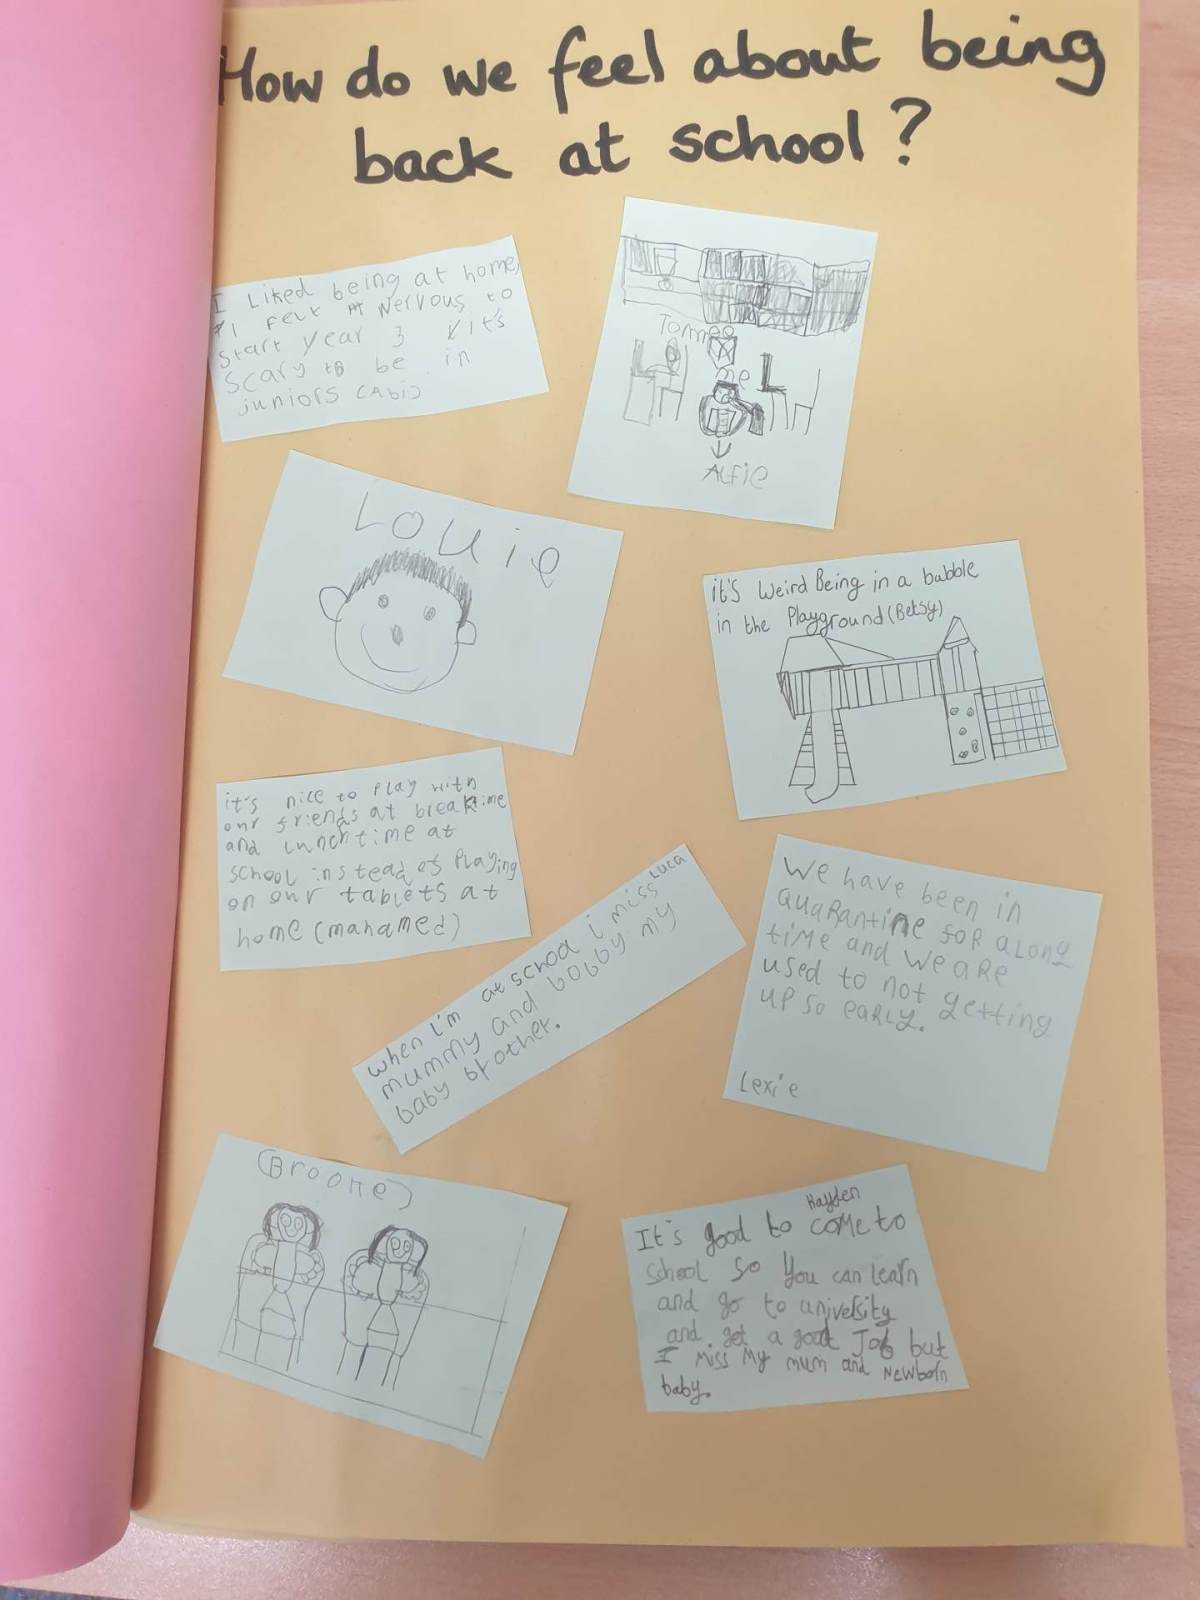 How do we feel about being
back at school?
I Liked being at home,
I felt nervous to
start year 3 it's
scary to be in
juniors (Abi)
Tommee
me
Alfie
Louie
it's weird Being in a bubble
in the Playground (Betsy)
it's nice to play with
our friends at breaktime
and lunch time at
school instead of Playing
on our tablets at
home (mahamed)
Luca
when I'm at school i miss
mummy and bobby my
baby brother.
We have been in
quarantine for a long
time and we are
used to not getting
up so early.
Lexie
(Brooke)
Hayden
It's good to come to
school so you can learn
and go to university
and get a good Job but
I miss my mum and newborn
baby.